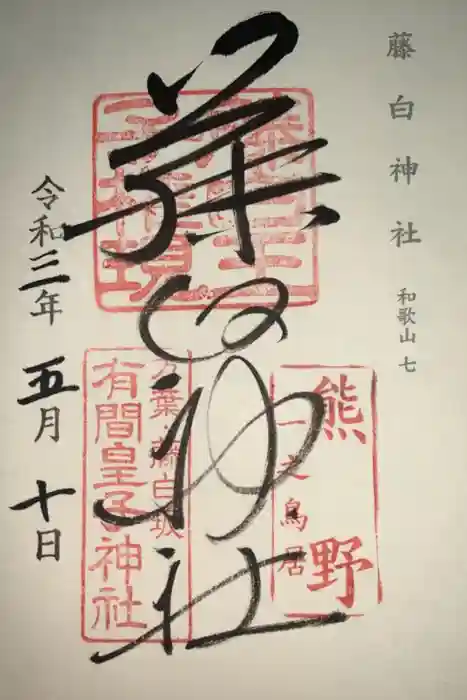 藤白神社
和歌山 七
藤白神社
藤白王
子権現
熊野
一之鳥居
万葉・藤白坂
有間皇子神社
令和三年 五月 十日